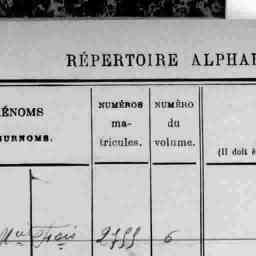 RÉPERTOIRE ALPHA
ÉNOMS
SURNOMS.
NUMÉROS
ma-
tricules.
NUMÉRO
du
volume.
(Il doit ê
6